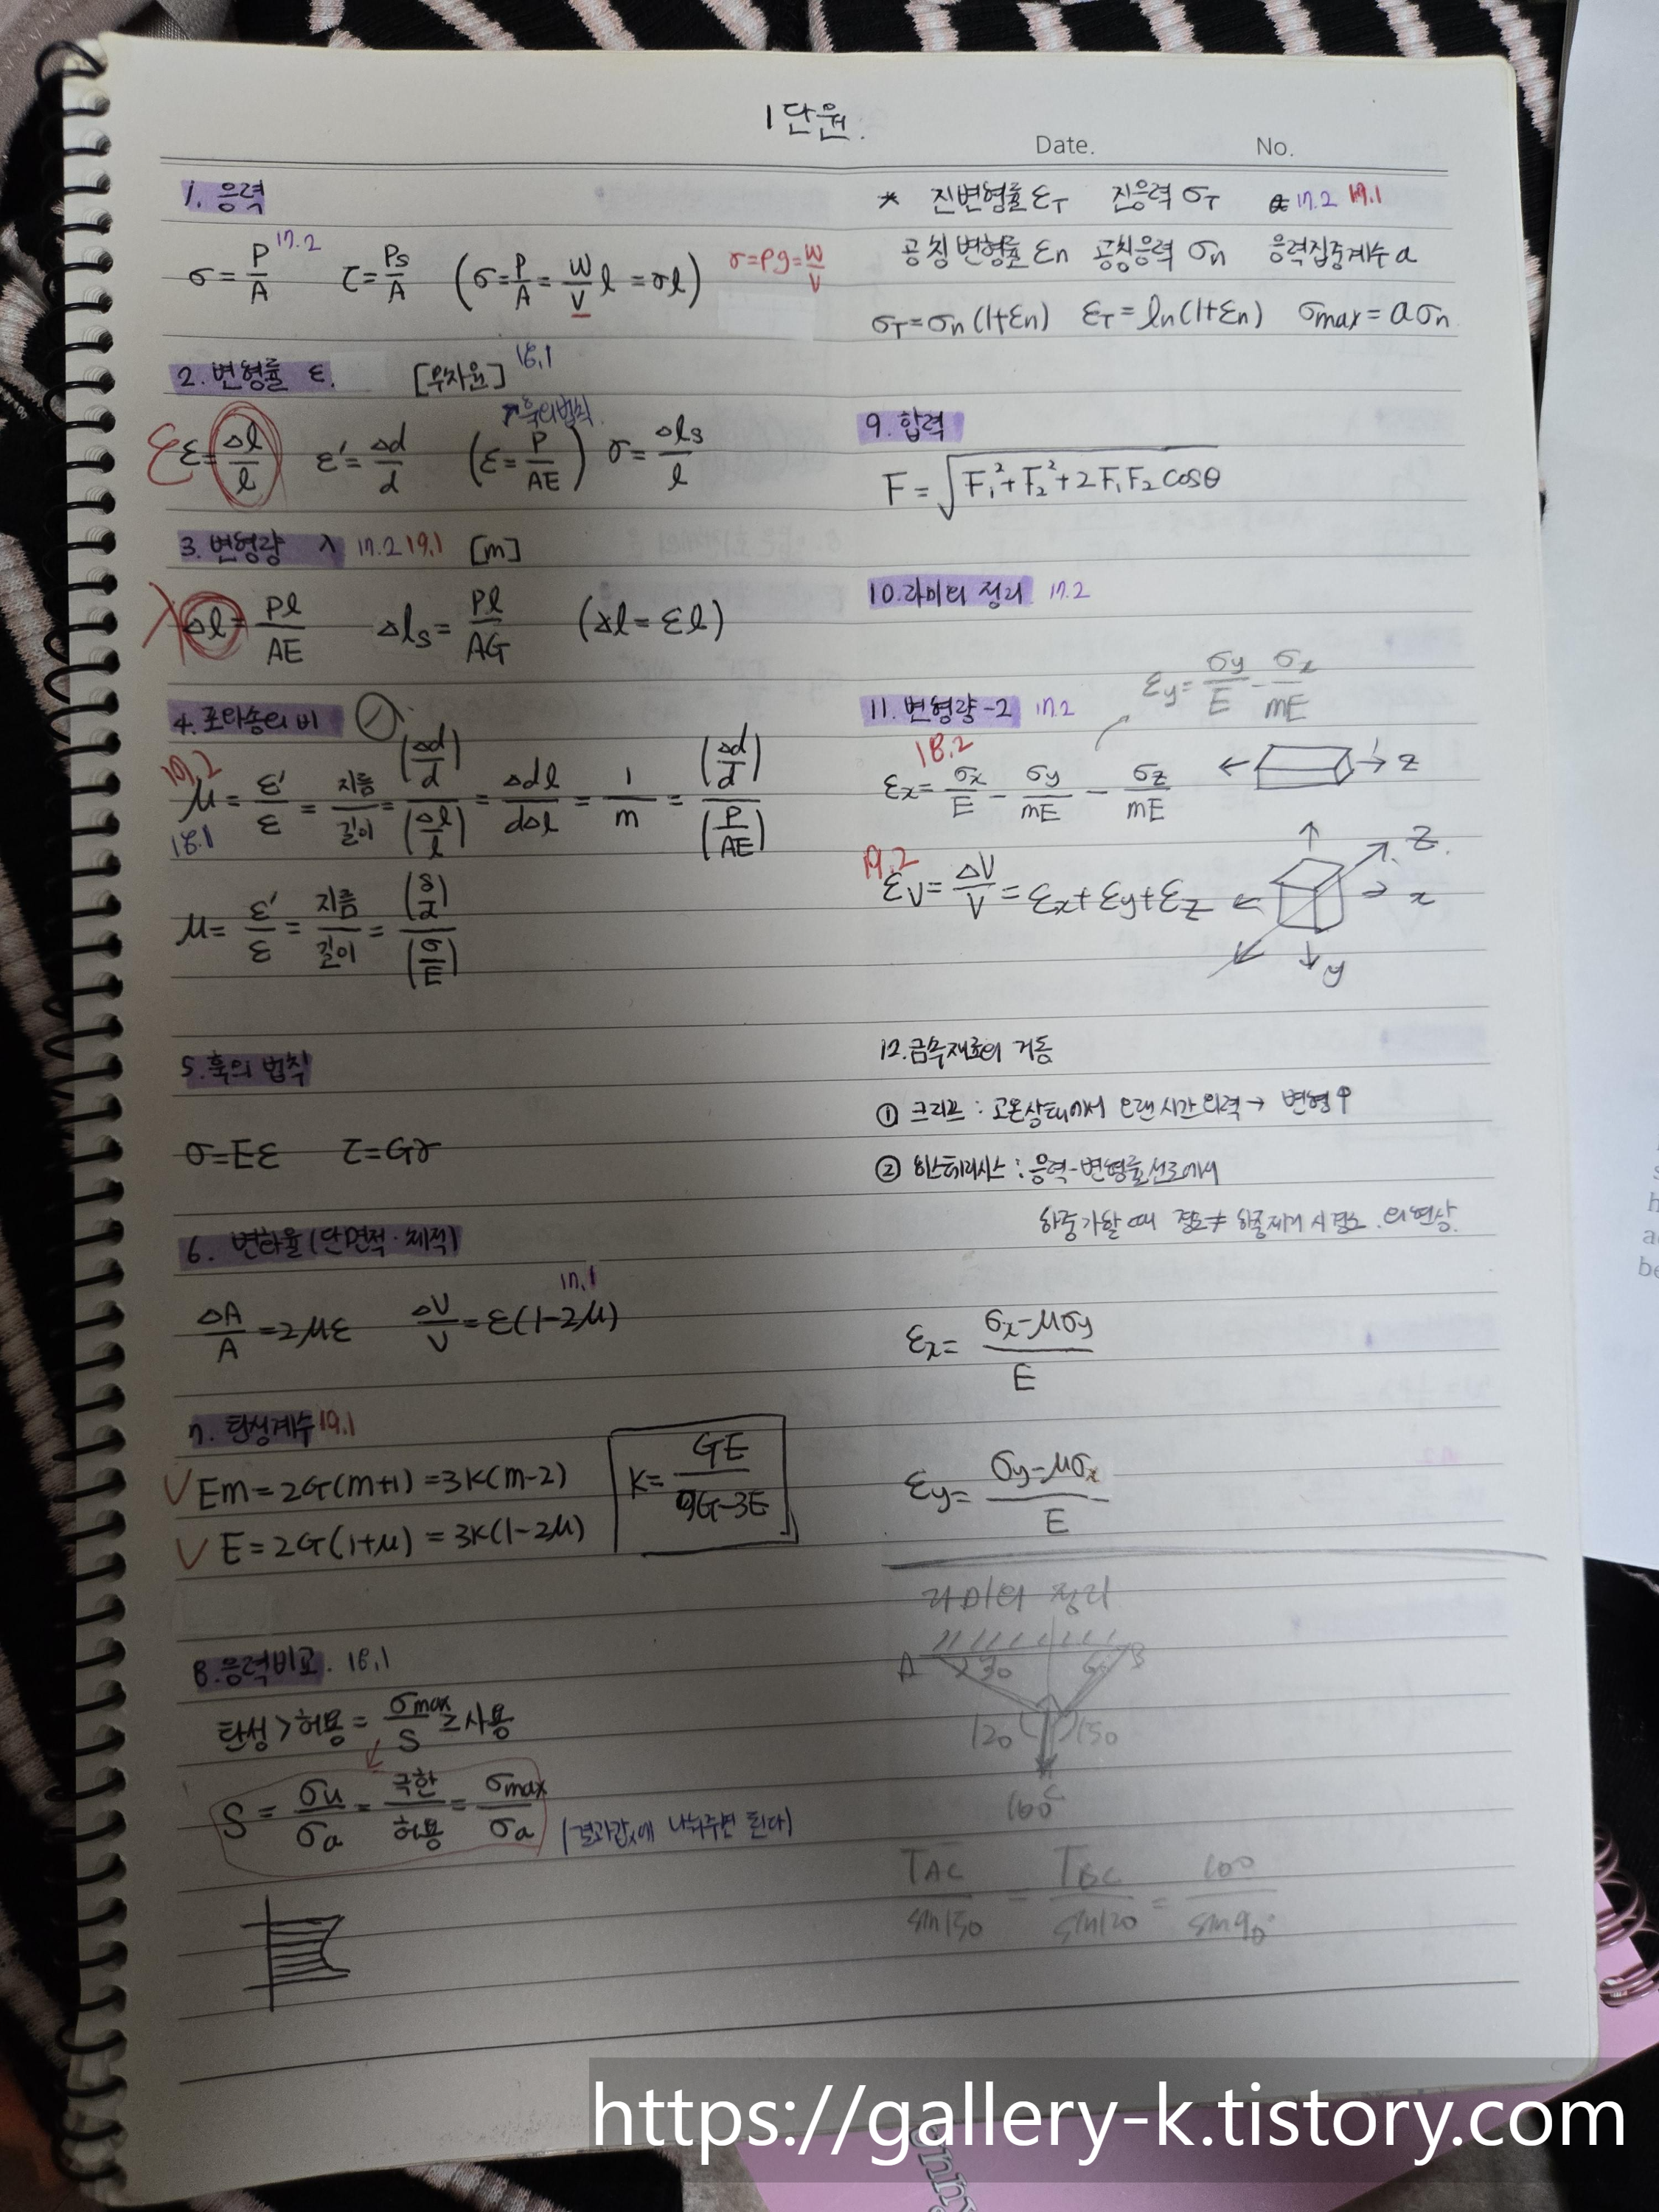 1단원.
Date. No.
1. 응력
σ=P/A 17.2 τ=Ps/A (σ=P/A=W/V l=γl) γ=ρg=W/V
2. 변형률 ε. [무차원] 18.1
ε ε=Δl/l ε'=Δd/d (ε=P/AE) 훅의법칙 γ=Δls/l
3. 변형량 λ 17.2 19.1 [m]
λ Δl=Pl/AE Δls=Pl/AG (Δl=εl)
4. 포아송의 비
19.2
μ=ε'/ε=지름/길이=(Δd/d)/(Δl/l)=Δdl/dΔl=1/m=(Δd/d)/(P/AE)
18.1
μ=ε'/ε=지름/길이=(δ/d)/(σ/E)
5. 훅의 법칙
σ=Eε τ=Gγ
6. 변화율(단면적·체적)
ΔA/A=2με ΔV/V=ε(1-2μ) 17.1
7. 탄성계수 19.1
V Em=2G(m+1)=3K(m-2)
V E=2G(1+μ)=3K(1-2μ)
K=GE/9G-3E
8. 응력비교. 18.1
탄성>허용=σmax/S≥사용
S=σu/σa=극한/허용=σmax/σa (결과값에 나눠주면 된다)
* 진변형률 εT 진응력 σT 17.2 19.1
공칭변형률 εn 공칭응력 σn 응력집중계수 a
σT=σn(1+εn) εT=ln(1+εn) σmax=aσn
9. 합력
F=√F₁²+F₂²+2F₁F₂cosθ
10. 라미의 정리 17.2
εy=σy/E-σz/mE
11. 변형량-2 17.2
18.2
εx=σx/E-σy/mE-σz/mE z
19.2
εV=ΔV/V=εx+εy+εz z x y
12. 금속재료의 거동
① 크리프 : 고온상태에서 오랜시간 외력→ 변형↑
② 히스테리시스 : 응력-변형률선도에서
하중가할 때 경로≠ 하중제거 시 경로. 의 현상.
εx=σx-μσy/E
εy=σy-μσx/E
라미의 정리
A 30 60 B
120 150
100
TAC/sin150=TBC/sin120=100/sin90°
https://gallery-k.tistory.com